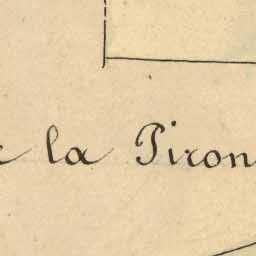 la Piron